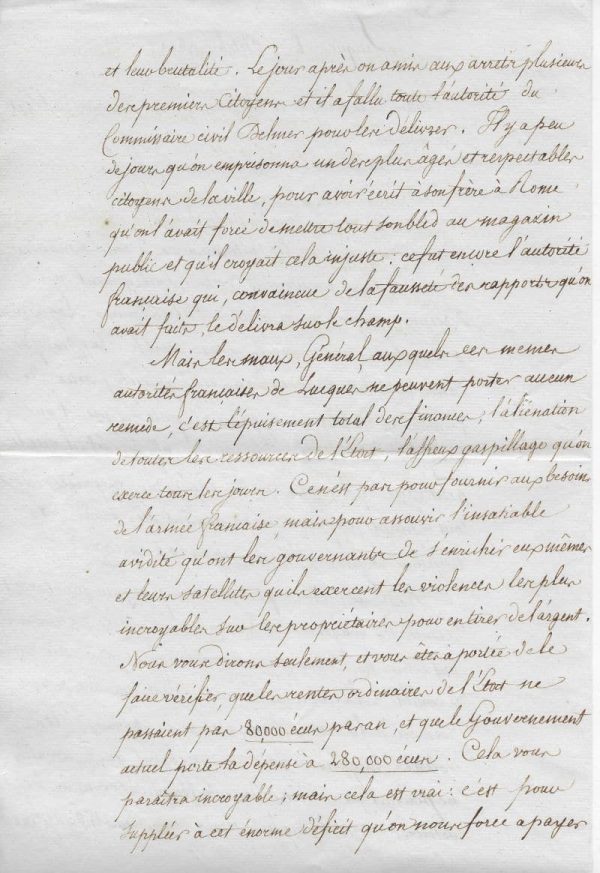 et leur brutalité. Le jour après on a mis aux arrêts plusieurs
des premiers Citoyens et il a fallu toute l'autorité du
Commissaire civil Belmer pour les délivrer. Il y a peu
de jours qu'on emprisonna un des plus âgés et respectables
citoyens de la ville, pour avoir écrit à son frère à Rome
qu'on l'avait forcé de mettre tout son bled au magazin
public et qu'il croyait cela injuste : ce fut encore l'autorité
française qui, convaincue de la fausseté des rapports qu'on
avait faits, le délivra sur le champ.
Mais les maux, Général, aux quels ces memes
autorités françaises de Lucques ne peuvent porter aucun
remede, c'est l'épuisement total des finances, l'aliénation
de toutes les ressources de l'Etat, l'affreux gaspillage qu'on
exerce tous les jours. Ce n'est pas pour fournir aux besoins
de l'armée française, mais pour assouvir l'insatiable
avidité qu'ont les gouvernants de s'enrichir eux mêmes
et leurs satellites qu'ils exercent les violences les plus
incroyables sur les propriétaires pour en tirer de l'argent.
Nous vous dirons seulement, et vous êtes à portée de le
faire vérifier, que les rentes ordinaires de l'Etat ne
passaient pas 80000 écus par an, et que le Gouvernement
actuel porte sa dépense à 280,000 écus. Cela vous
paraitra incroyable ; mais cela est vrai : c'est pour
suppléer à cet énorme déficit qu'on nous force a payer